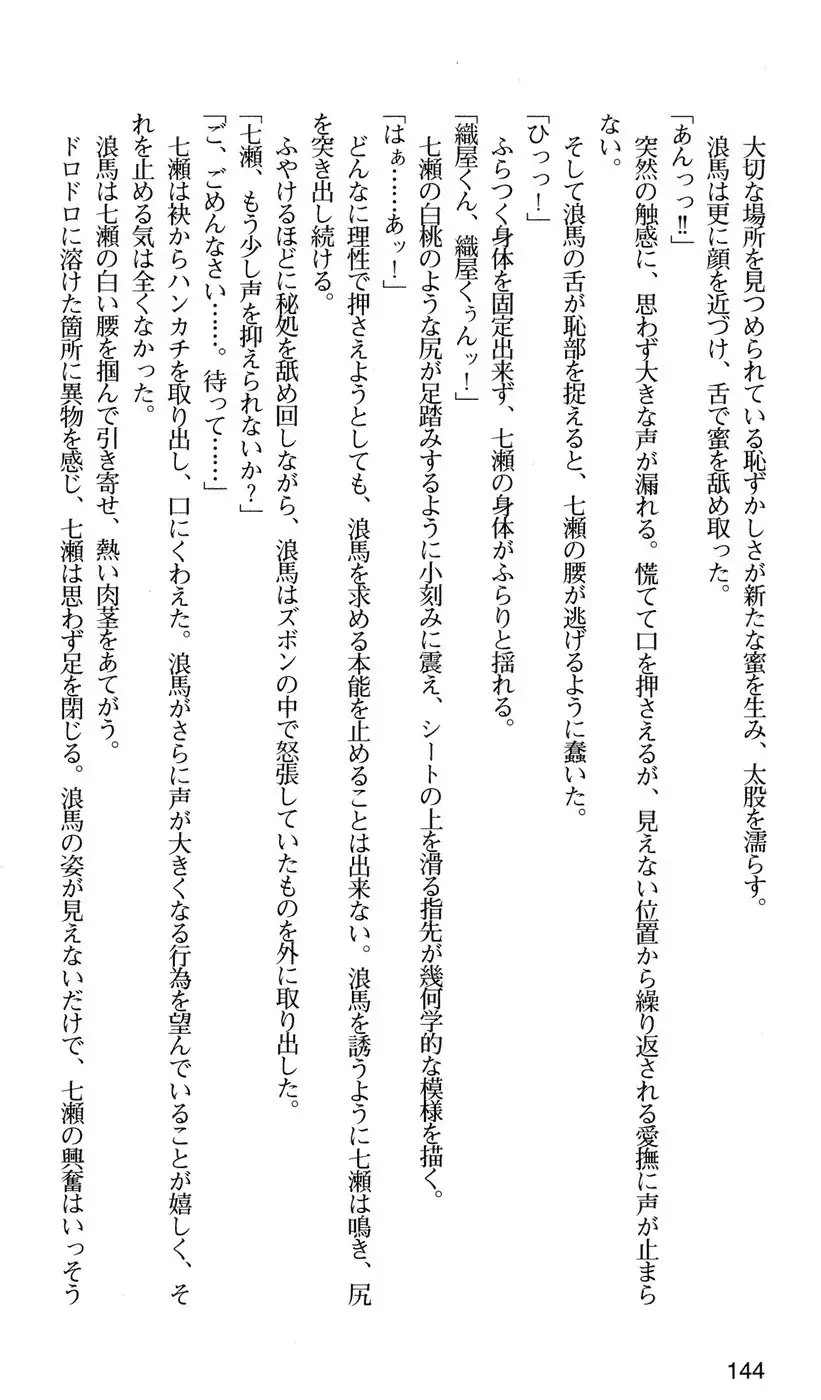 大切な場所を見つめられている恥ずかしさが新たな蜜を生み、太股を濡らす。
浪馬は更に顔を近づけ、舌で蜜を舐め取った。
「あんっっ!!」
突然の触感に、思わず大きな声が漏れる。慌てて口を押さえるが、見えない位置から繰り返される愛撫に声が止まら
ない。
そして浪馬の舌が恥部を捉えると、七瀬の腰が逃げるように蠢いた。
「ひっっ！」
ふらつく身体を固定出来ず、七瀬の身体がふらりと揺れる。
「織屋くん、織屋くぅんッ！」
七瀬の白桃のような尻が足踏みするように小刻みに震え、シートの上を滑る指先が幾何学的な模様を描く。
「はぁ……あッ！」
どんなに理性で押さえようとしても、浪馬を求める本能を止めることは出来ない。浪馬を誘うように七瀬は鳴き、尻
を突き出し続ける。
ふやけるほどに秘処を舐め回しながら、浪馬はズボンの中で怒張していたものを外に取り出した。
「七瀬、もう少し声を抑えられないか？」
「ご、ごめんなさい……。待って……」
七瀬は袂からハンカチを取り出し、口にくわえた。浪馬がさらに声が大きくなる行為を望んでいることが嬉しく、そ
れを止める気は全くなかった。
浪馬は七瀬の白い腰を掴んで引き寄せ、熱い肉茎をあてがう。
ドロドロに溶けた箇所に異物を感じ、七瀬は思わず足を閉じる。浪馬の姿が見えないだけで、七瀬の興奮はいっそう
144